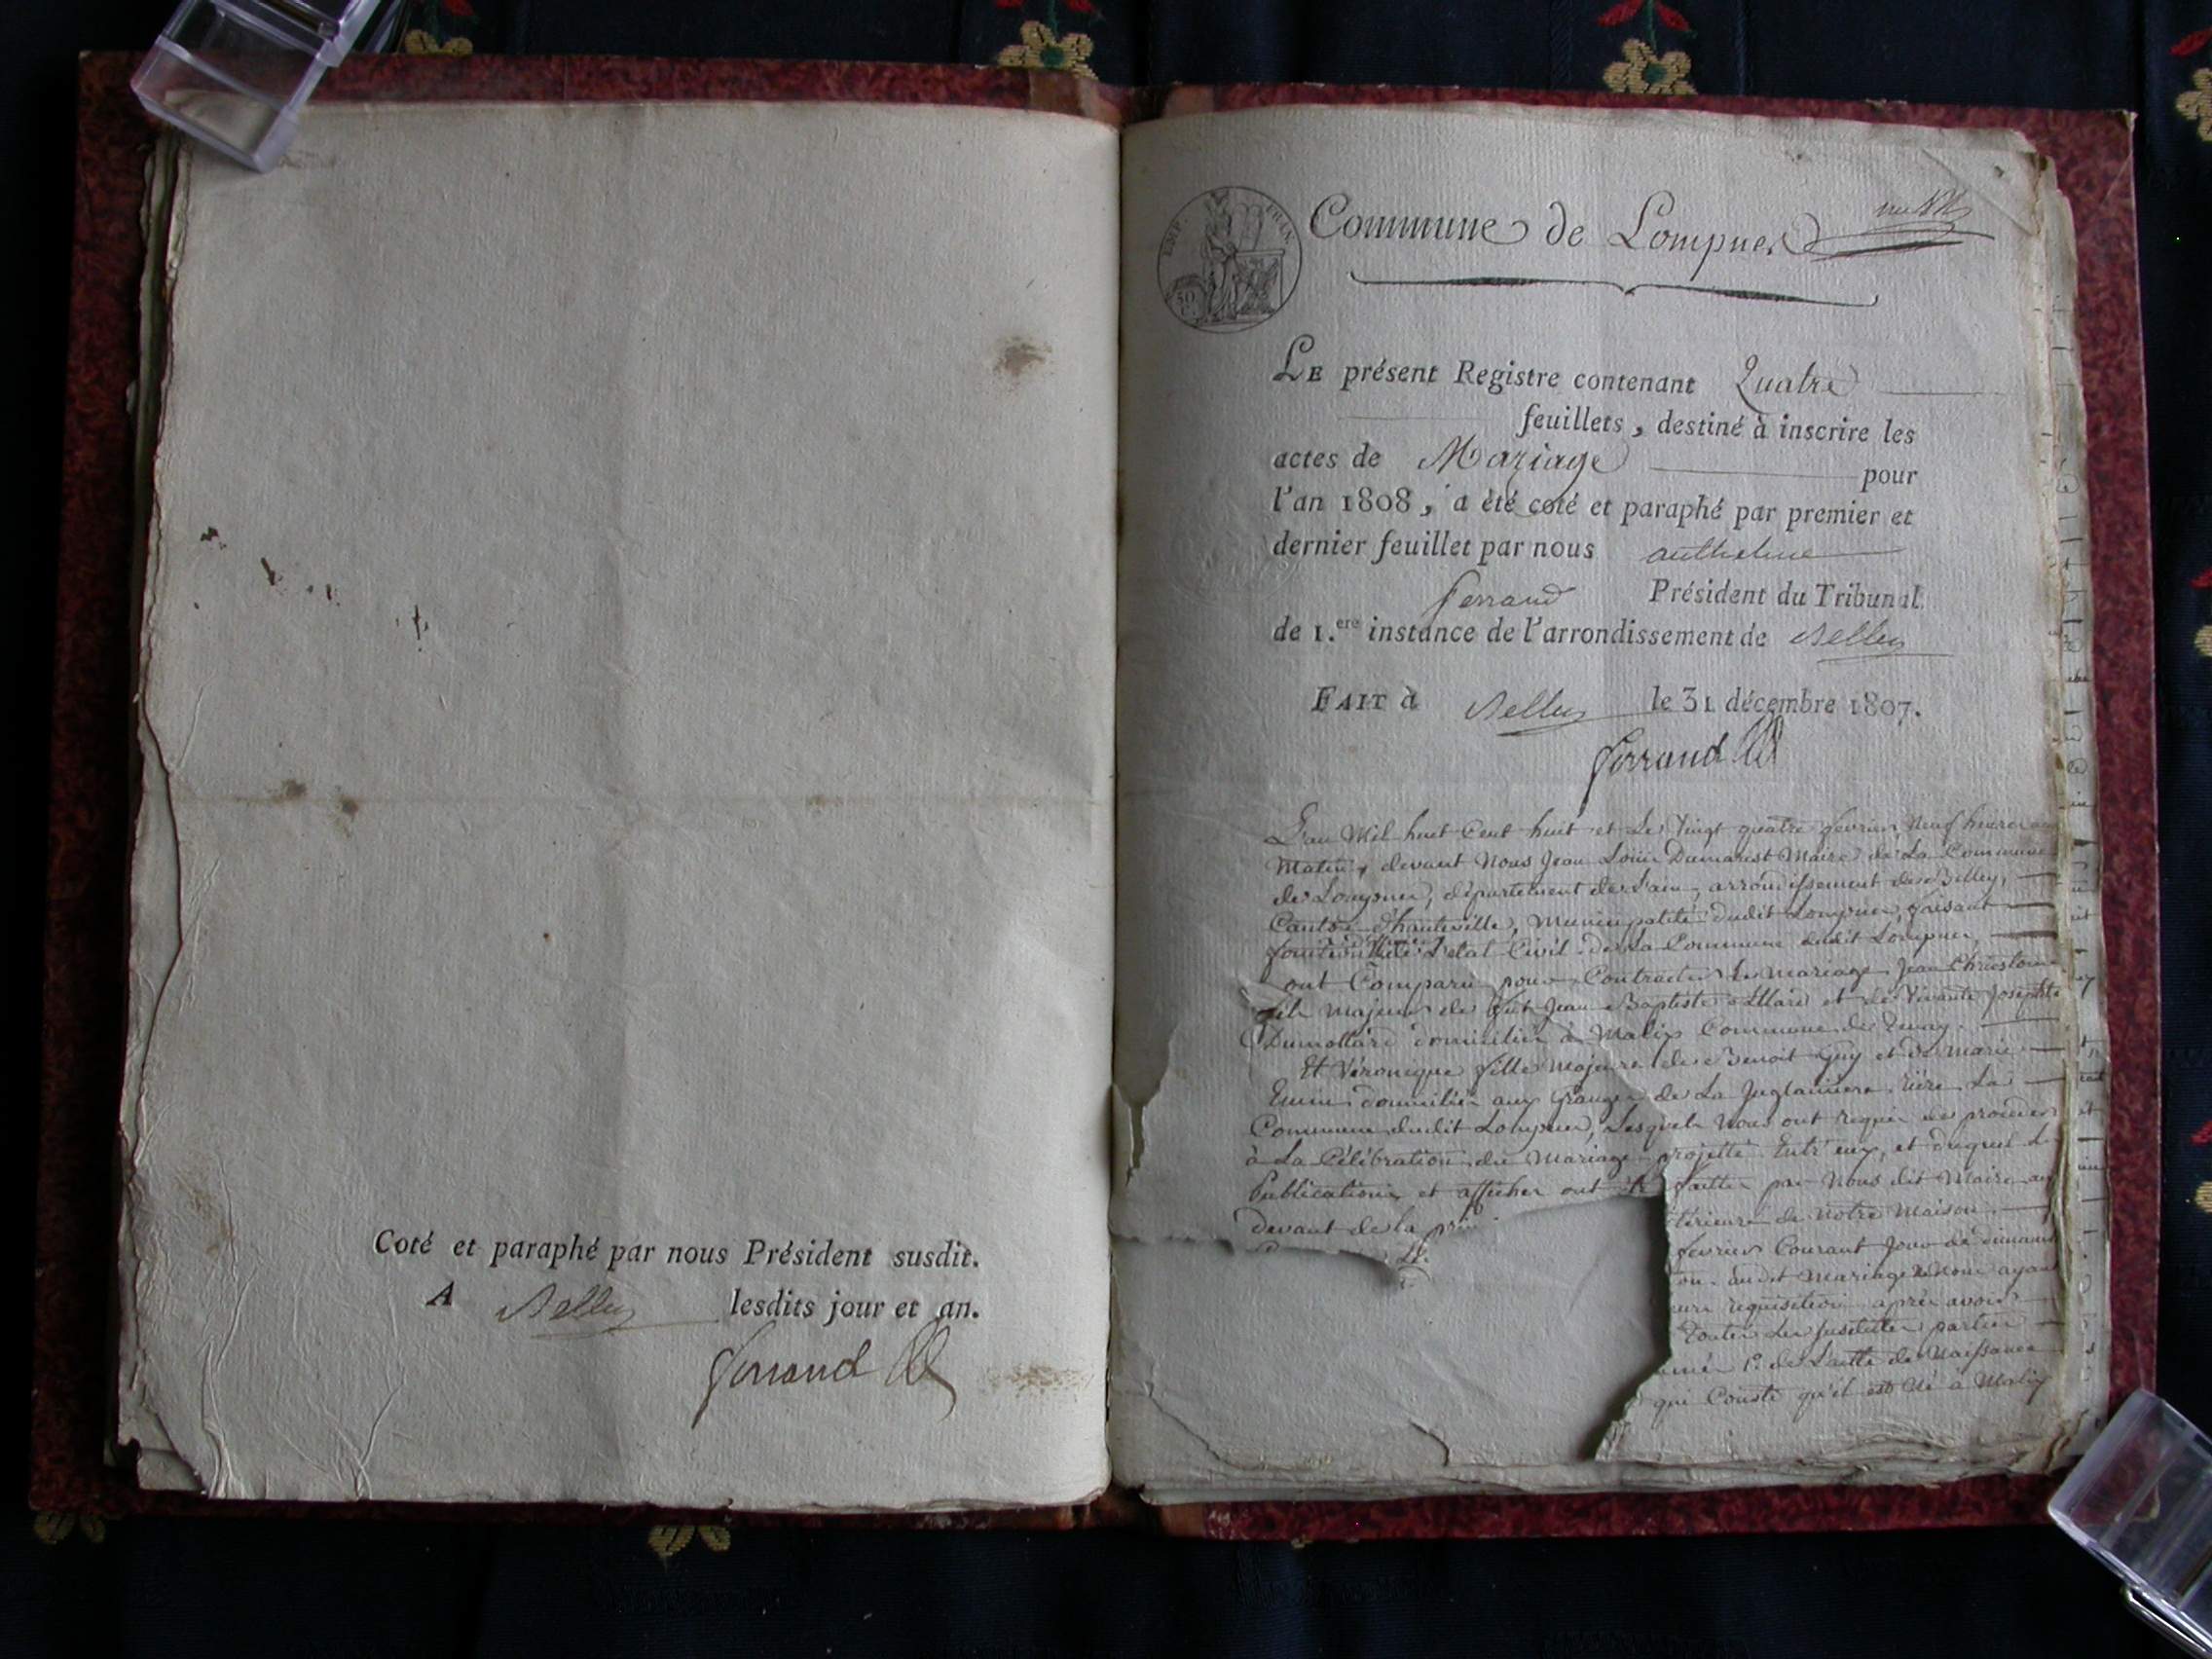 Coté et paraphé par nous Président susdit.
A Belley lesdits jour et an.
Ferrand
EMP. FRAN.
50
C.
Commune de Lompnes
LE présent Registre contenant Quatre
feuillets, destiné à inscrire les
actes de Mariage pour
l'an 1808, a été coté et paraphé par premier et
dernier feuillet par nous anthelme
ferrand Président du Tribunal
de 1.ere instance de l'arrondissement de Belley
FAIT à Belley le 31 décembre 1807.
ferrand
L'an Mil huit Cent huit et Le Vingt quatre fevrier, Neuf heures au
Matin, devant Nous Jean Louis Dumarest Maire de La Commune
de Lompnes, département de L'ain, arrondissement de Belley,
Canton d'hauteville, Municipalité dudit Lompnes, faisant
fonction L'état Civil de La Commune dudit Lompnes,
ont Comparu pour Contracter Le Mariage, Jean Chrisostome
fils Majeur de fut Jean Baptiste et de Vivante Josephte
Dumollard domiciliés à Malix Commune de Tenay.
Et Véronique fille Majeure de Benoit Guy et de Marie
domiciliés aux Granges de La rière La
Commune dudit Lompnes, Lesquels Nous ont requis de proceder
à La Célébration du Mariage projetté Entr'eux, et duquel Les
Publications et affiches ont faittes par Nous dit Maire au
devant de la térieure de Notre Maison
fevrier Courant Jour de dimanche
on audit Mariage Nous ayant
requisition après avoir
Toutes Les susdittes parties
1º de L'acte de Naissance
qui Conste qu'il est Né à Malix